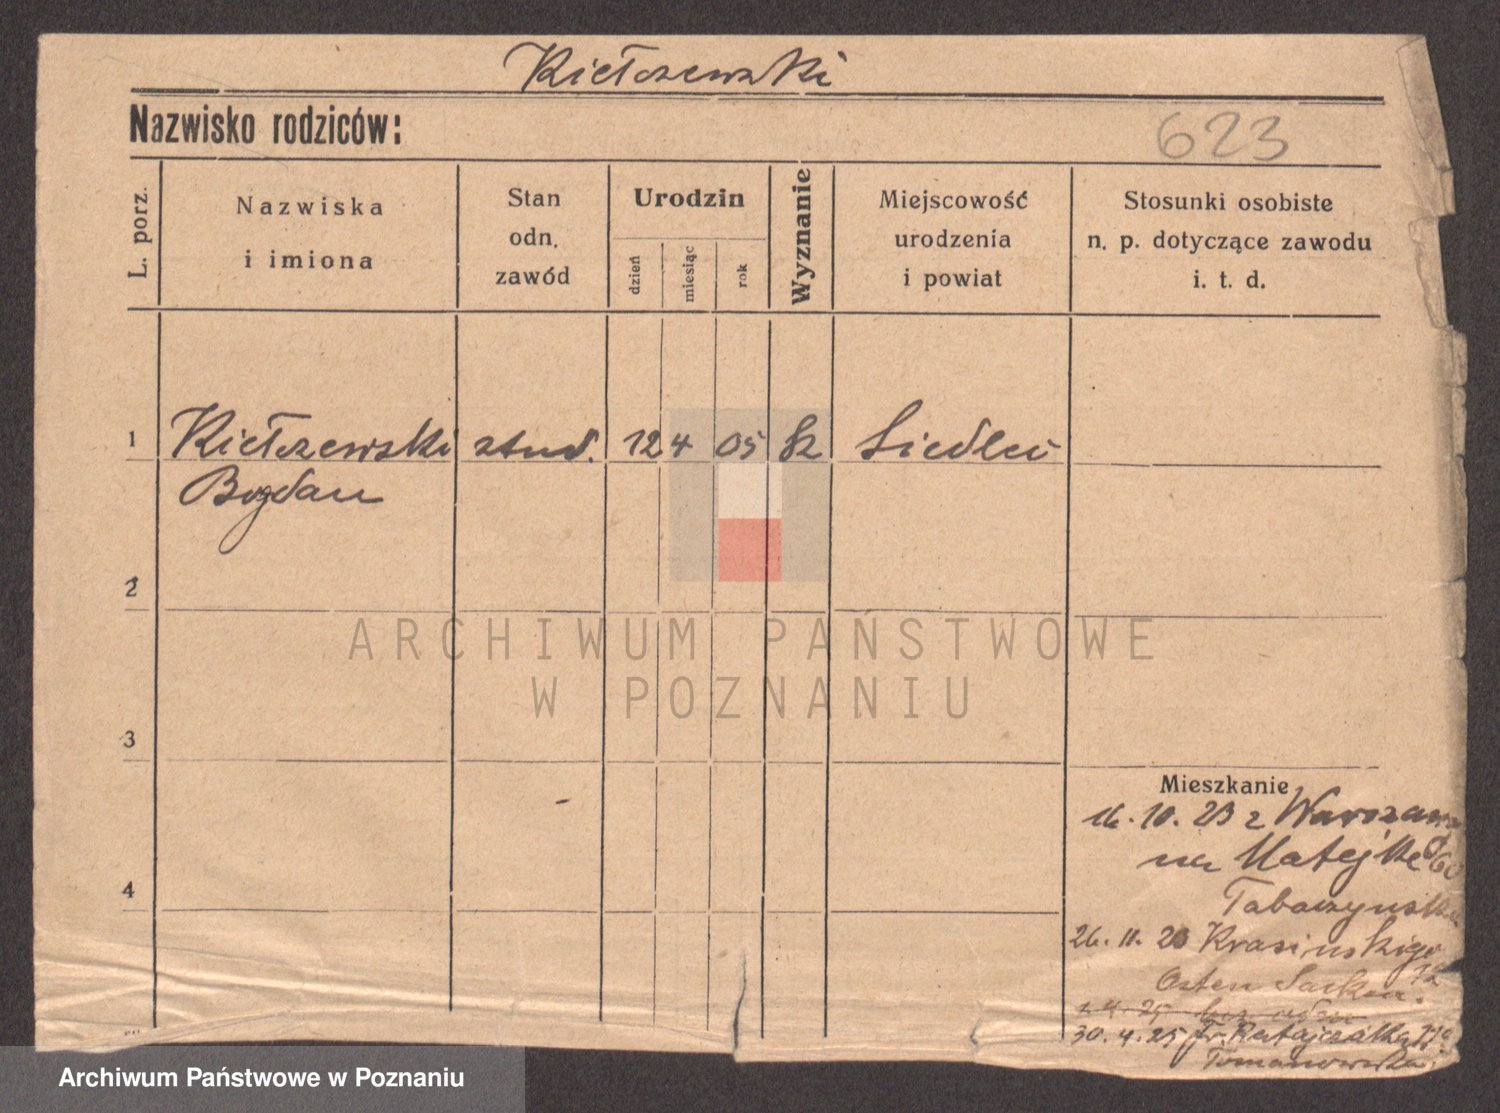 Kiełczewski
Nazwisko rodziców:
623
L. porz.
Nazwiska
i imiona
Stan
odn.
zawód
Urodzin
dzień
miesiąc
rok
Wyznanie
Miejscowość
urodzenia
i powiat
Stosunki osobiste
n. p. dotyczące zawodu
i. t. d.
1 Kiełczewski stud. 12 4 05 Siedlec
Bogdan
2
ARCHIWUM PAŃSTWOWE
W POZNANIU
3
Mieszkanie
16.10.23 z Warszawa
na Matejki 60
4
Tabaczyńska
26.11.23 Krasińskiego
Osten Sacken. 12
30.4.25 fr. Ratajczaka
Tomanowska
Archiwum Państwowe w Poznaniu